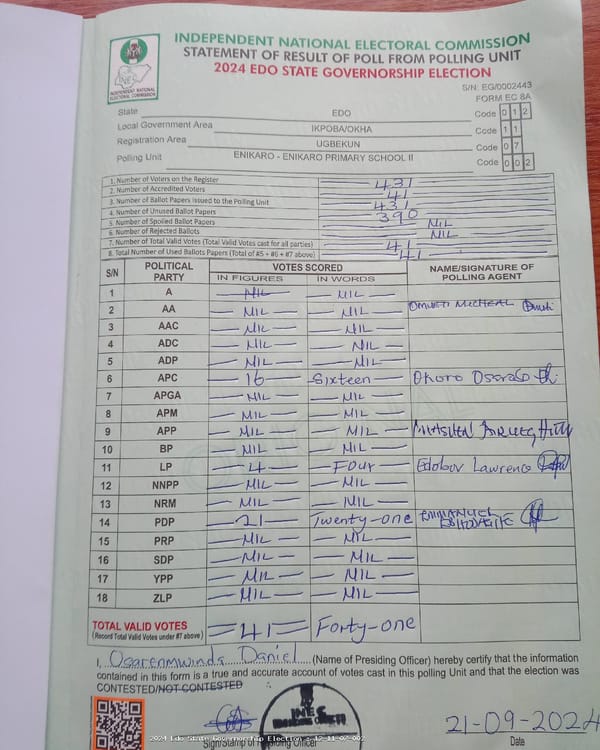 INDEPENDENT NATIONAL ELECTORAL COMMISSION
STATEMENT OF RESULT OF POLL FROM POLLING UNIT
2024 EDO STATE GOVERNORSHIP ELECTION
INEC
INDEPENDENT NATIONAL
ELECTORAL COMMISSION
S/N: EG/0002443
FORM EC 8A
State EDO Code 0 1 2
Local Government Area IKPOBA/OKHA Code 1 1
Registration Area UGBEKUN Code 0 7
Polling Unit ENIKARO - ENIKARO PRIMARY SCHOOL II Code 0 0 2
1. Number of Voters on the Register 431
2. Number of Accredited Voters 41
3. Number of Ballot Papers Issued to the Polling Unit 431
4. Number of Unused Ballot Papers 390
5. Number of Spoiled Ballot Papers NIL
6. Number of Rejected Ballots NIL
7. Number of Total Valid Votes (Total Valid Votes cast for all parties) 41
8. Total Number of Used Ballots Papers (Total of #5 + #6 + #7 above) 41
S/N POLITICAL PARTY VOTES SCORED NAME/SIGNATURE OF POLLING AGENT
IN FIGURES IN WORDS
1 A NIL NIL
2 AA NIL NIL
3 AAC NIL NIL
4 ADC NIL NIL
5 ADP NIL NIL
6 APC 16 Sixteen Okoro
7 APGA NIL NIL
8 APM NIL NIL
9 APP NIL NIL
10 BP NIL NIL
11 LP 4 Four Lawrence
12 NNPP NIL NIL
13 NRM NIL NIL
14 PDP 21 Twenty-one EMMANUEL
15 PRP NIL NIL
16 SDP NIL NIL
17 YPP NIL NIL
18 ZLP NIL NIL
TOTAL VALID VOTES =41= Forty-one
(Record Total Valid Votes under #7 above)
I, Osarenmwinda Daniel (Name of Presiding Officer) hereby certify that the information
contained in this form is a true and accurate account of votes cast in this polling Unit and that the election was
CONTESTED/NOT CONTESTED
INEC
21-09-2024
Sign/Stamp of Presiding Officer Date